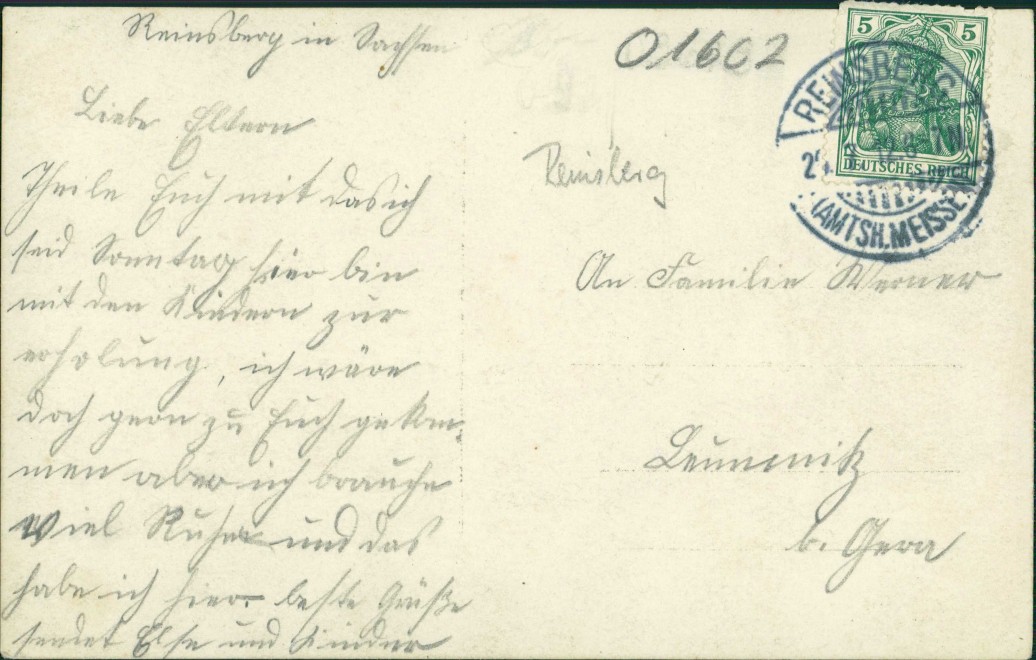 Reinsberg in Sachsen
Liebe Eltern
Theile Euch mit das ich
seid Sonntag hier bin
mit den Kindern zur
erholung, ich wäre
doch gern zu Euch gekom
men aber ich brauche
viel Ruhe und das
habe ich hier. beste Grüße
sendet Else und Kinder
01602
Reinsberg
5 5
DEUTSCHES REICH
REINSBERG
(AMTSH. MEISSEN
An Familie Werner
Leumnitz
b. Gera